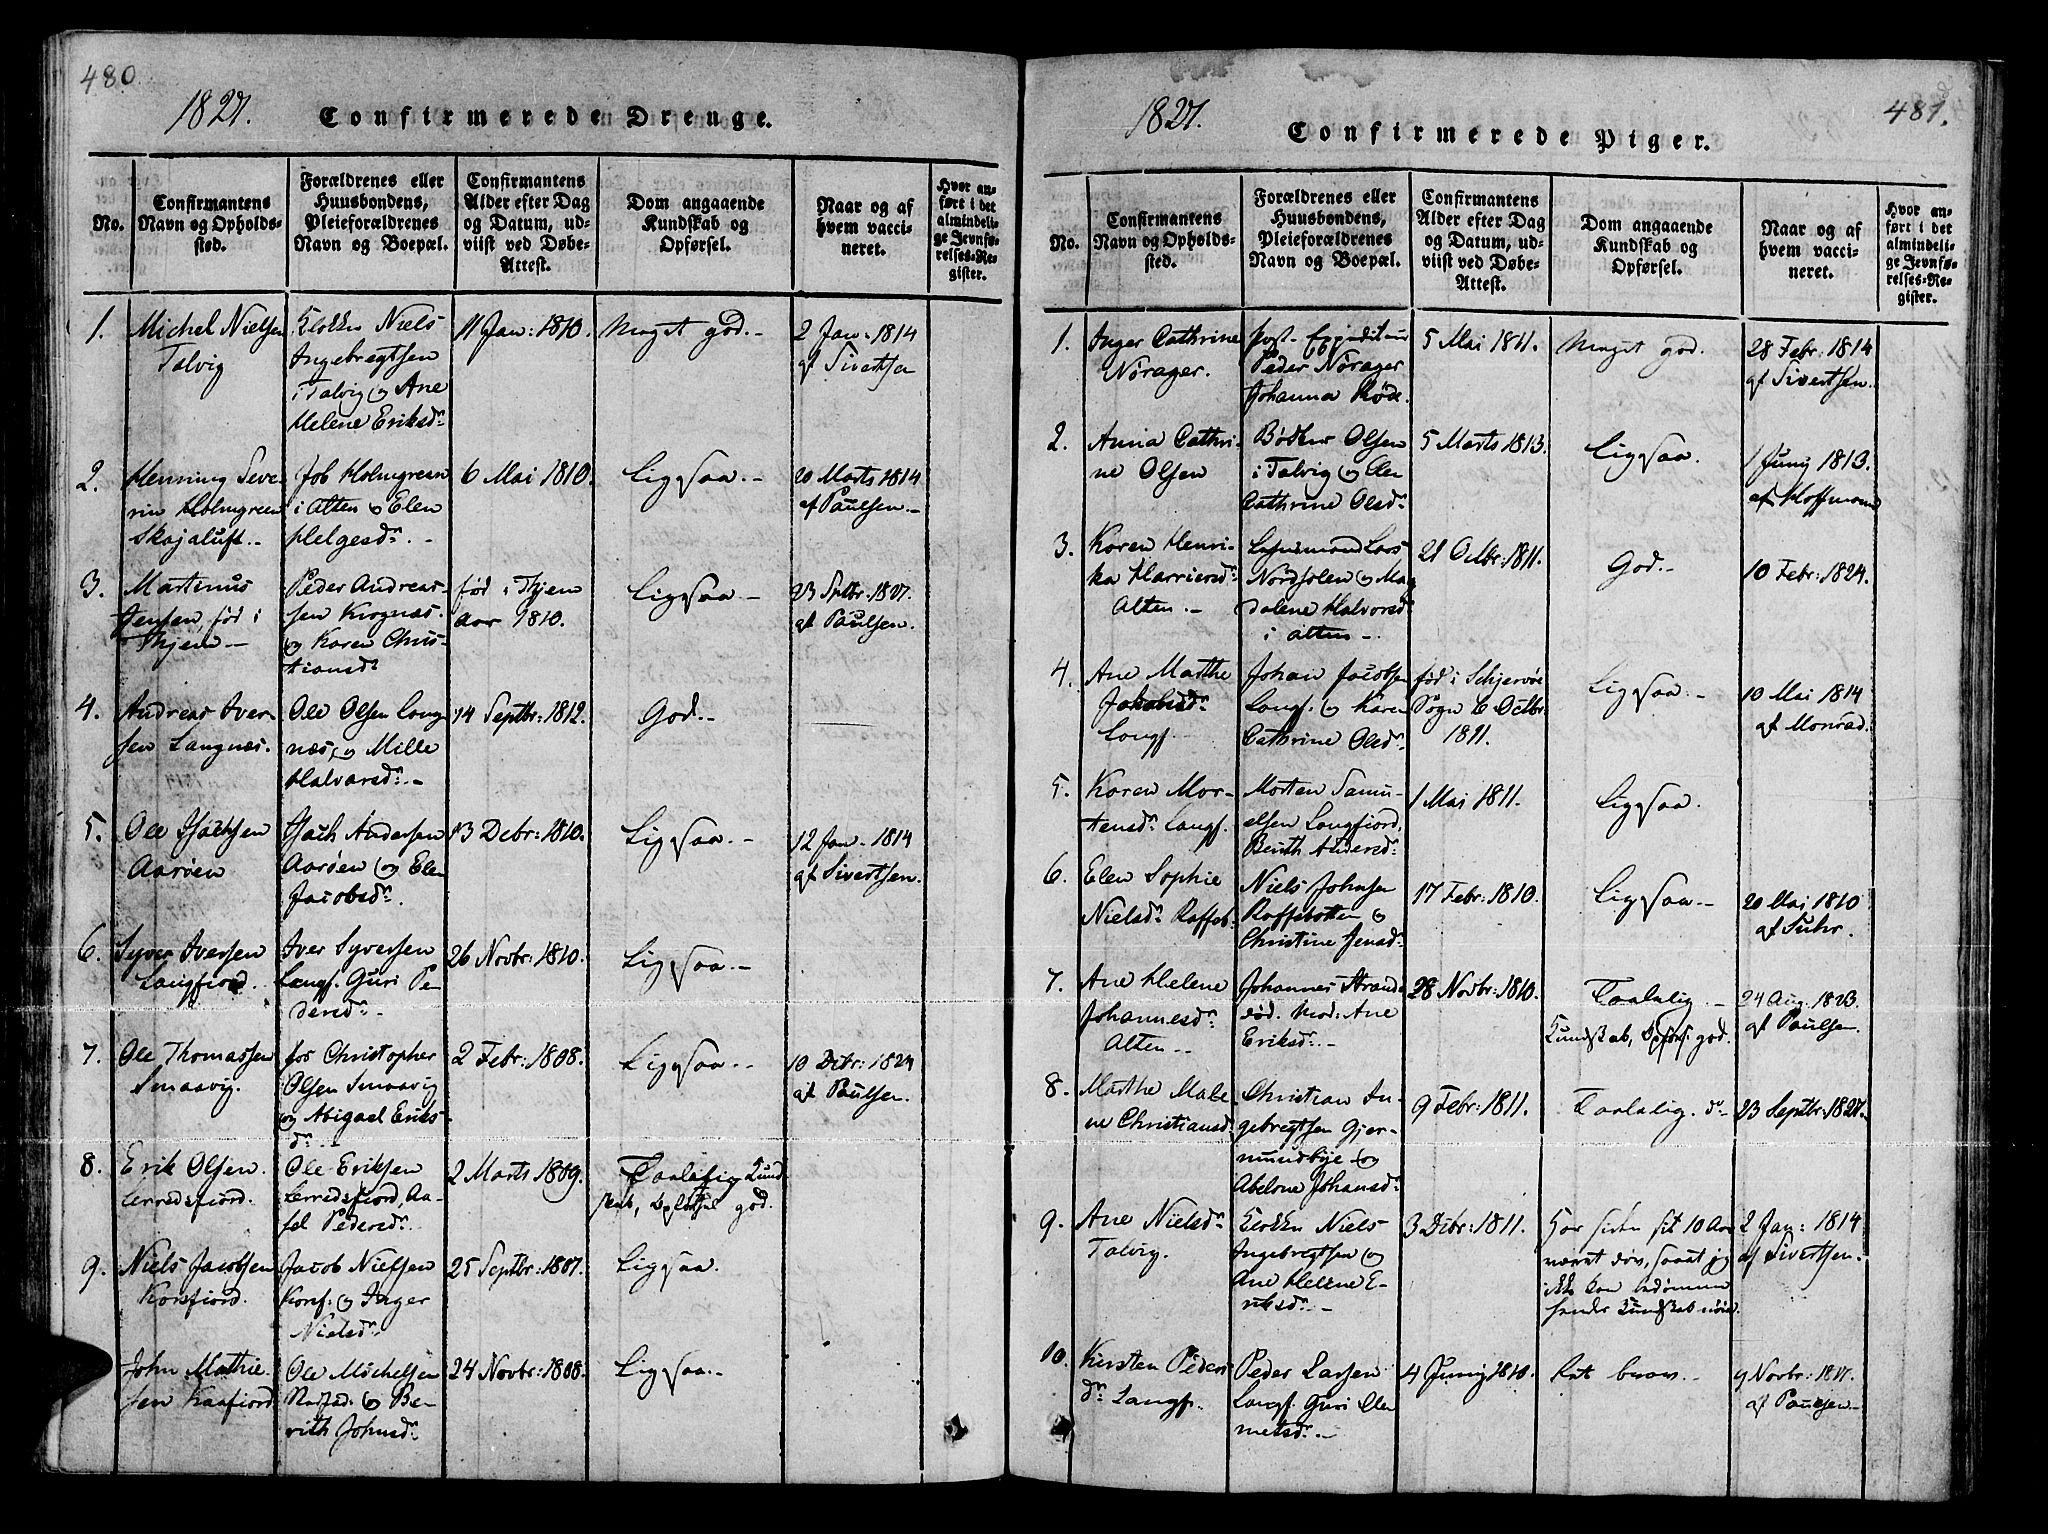 480.
1827.
Confirmerede Drenge.
No.
Confirmantens
Navn og Opholds-
sted.
Forældrenes eller
Huusbondens,
Pleieforældrenes
Navn og Boepæl.
Confirmantens
Alder efter Dag
og Datum, ud-
viist ved Døbe-
Attest.
Dom angaaende
Kundskab og
Opførsel.
Naar og af
hvem vacci-
neret.
Hvor an-
ført i det
almindeli-
ge Jevnfø-
relses-Re-
gister.
1.
Michel Nielsen
Talvig
Klokker Niels
Ingebregtsen
i Talvig og Ane
Helene Eriksdr
11 Jan: 1810.
Meget god.-
2 Jan. 1814
af Sivertsen
2.
Henning Seve-
rin Holmgreen
Skajaluft.-
Job Holmgreen
i Alten og Elen
Helgesdr.-
6 Mai 1810.
Ligesaa.-
20 Marts 1814
af Paulsen.-
3.
Martinus
Jensen, fød i
Peder Andreas-
sen
og Karen Chris-
tiansdr
fød i
aar 1810.
Ligesaa-
23 Septbr: 1827.
af Paulsen.
4.
Andreas Iver-
sen Langnæs.
Ole Olsen Lang-
næs, og Mille
Halvorsdr.-
14 Septbr: 1812.
God.-
5.
Ole
Aarøen
Andersen
Aarøen og Elen
Jacobsdr.
13 Debr: 1810.
Ligesaa.-
12 Jan. 1814
af Sivertsen.
6.
Syver Iversen
Langfiord.
Iver Syversen
Langf. Guri Pe-
dersdr.-
26 Novbr: 1810.
Ligesaa.-
7.
Ole Thomassen
Smaavig.
hos Christopher
Olsen Smaavig
og Abigael Eriks-
dr.-
2 Febr: 1808.
Ligesaa.-
10 Debr: 1824
af Paulsen.
8.
Erik Olsen
Lerredsfiord.
Ole Eriksen
Lerredsfiord, Aa-
sel Pedersdr.
2 Marts 1809.
Taalelig Kund
skab, Opførsel god.
9.
Niels Jacobsen
Korsfiord.
Jacob Nielsen
Korsf. og Inger
Nielsdr.
25 Septbr: 1807.
Ligesaa.
John Mathie-
sen Kaafiord
Ole Michelsen
og Be-
rith Johnsdr.
24 Novbr: 1808.
Ligesaa.-
481.
1827.
Confirmerede Piger.
No.
Confirmantens
Navn og Opholds-
sted.
Forældrenes eller
Huusbondens,
Pleieforældrenes
Navn og Boepæl.
Confirmantens
Alder efter Dag
og Datum, ud-
viist ved Døbe-
Attest.
Dom angaaende
Kundskab og
Opførsel.
Naar og af
hvem vacci-
neret.
Hvor an-
ført i det
almindeli-
ge Jevnfø-
relses-Re-
gister.
1.
Inger Cathrine
Norager.
post-Expediteur
Peder Norager
Johanna Røde.
5 Mai 1811.
Meget god.
28 Febr: 1814
af Sivertsen.
2.
Anna Cathri-
ne Olsen
Bødker Olsen
i Talvig og Elen
Cathrine Olsdr
5 Marts 1813.
Ligesaa.
1 Juny 1813.
af Hoffmann
3.
Karen Henri-
ka
Alten.-
Lars
og Mag
dalene Halvorsdr
i Alten.-
21 Octbr: 1811.
God.-
10 Febr: 1824.
4.
Ane Marthe
Jakobsdr
Langf.
Johan Jacobsen
Langf. og Karen
Cathrine Olsdr.
fød i Schjervøe
Sogn 6 Octbr.
1811.
Ligesaa.-
10 Mai 1814
af Monrad.
5.
Karen Mor-
tensdr. Langf.
Morten Samu-
elsen Langfiord,
Berith Andersdr.
1 Mai 1811.
Ligesaa.
6.
Elen Sophie
Nielsdr. Raffeb.
Niels Johnsen
Raffebotten og
Christine Jensdr.
17 Febr: 1810.
Ligesaa.-
20 Mai 1810
af Suhr.
7.
Ane Helene
Johannesdr.
Alten.-
Johannes Strand
Mod: Ane
Eriksdr.-
28 Novbr: 1810.
Taalelig.-
Kundskab, Opførs: god.
24 Aug. 1823.
af Paulsen.
8.
Marthe Male-
ne Christiansd.
Christian In-
gebregtsen Gjer-
mundbye og
Abelone Johansdr.
9 Febr: 1811.
Taalelig. do
23 Septbr: 1827.
9.
Ane Nielsdr
Talvig.
Klokker Niels
Ingebregtsen og
Ane Helene E-
riksdr.-
3 Debr: 1811.
Har siden sit 10 Aar
været døv, saaat jeg
ikke kan bedømme
hendes Kundskab nøie.
2 Jan: 1814
af Sivertsen.
10.
Kirsten Peders
dr. Langf.
Peder Larsen
Langf. Guri Cle-
metsdr.-
4 Juny 1810.
Ret brav.-
9 Novbr: 1817.
af Paulsen.-